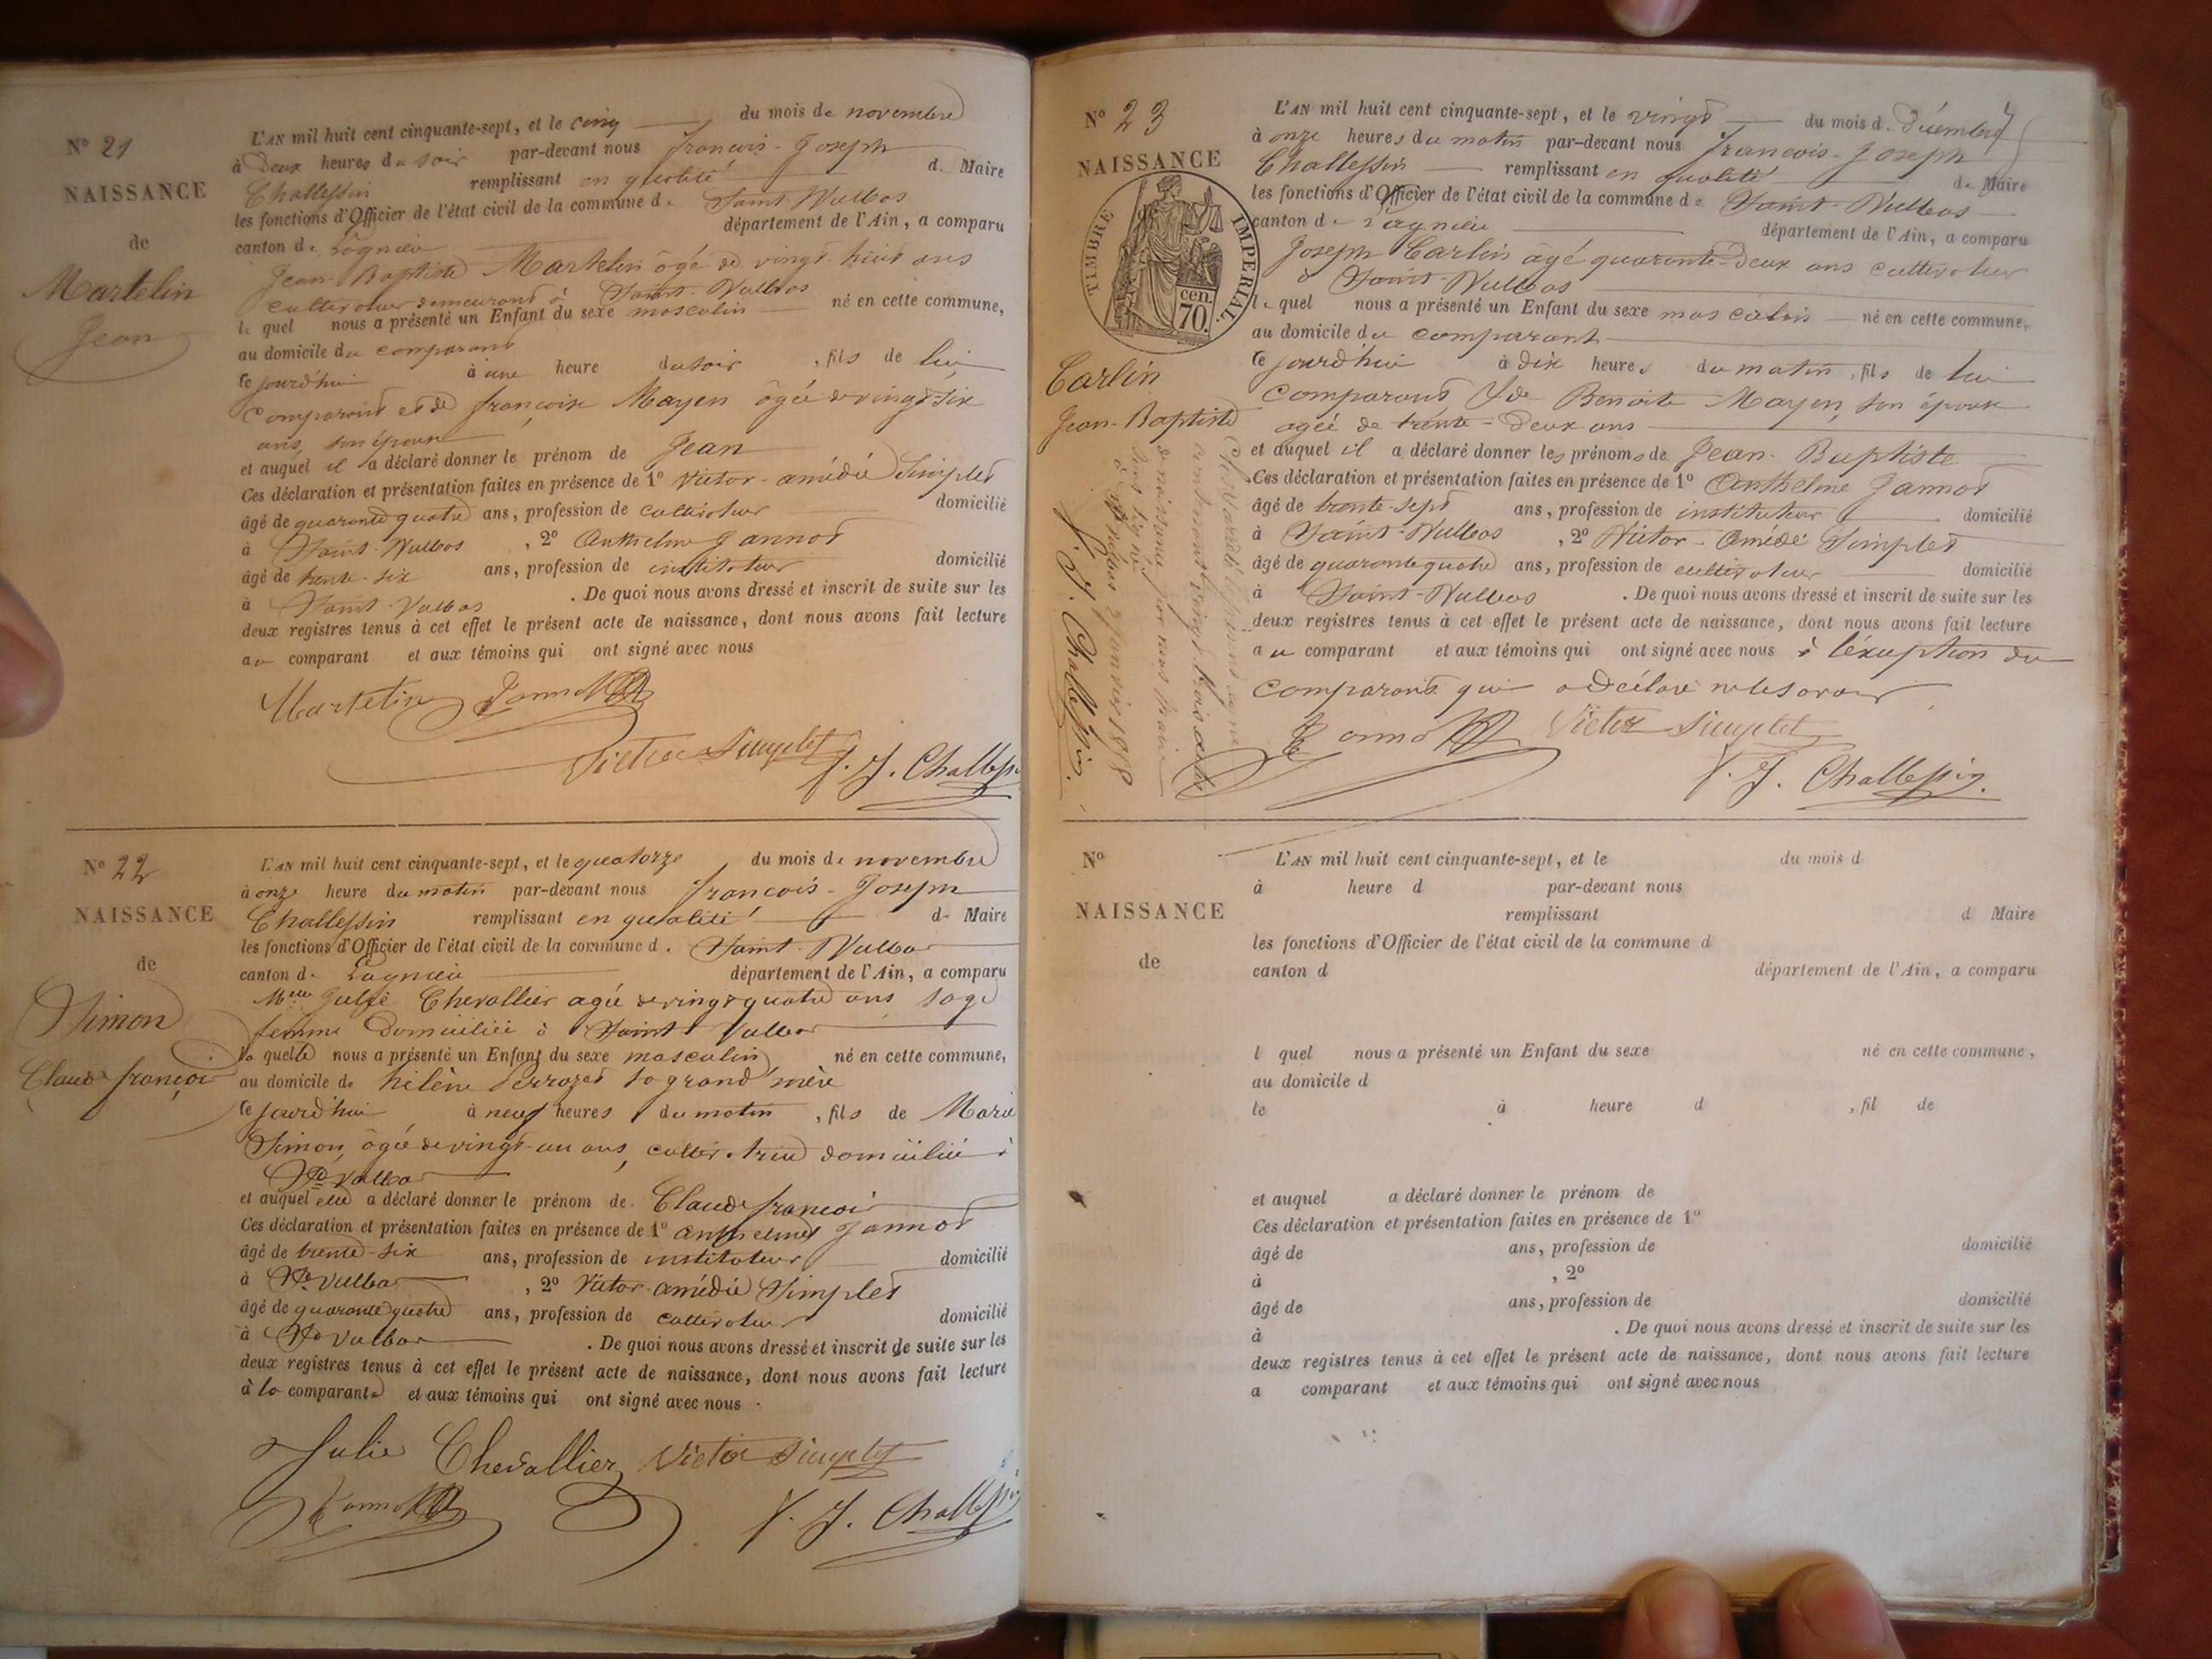 N° 21
NAISSANCE
de
Martelin
Jean
L'AN mil huit cent cinquante-sept, et le cinq du mois de novembre
à Deux heures du soir par-devant nous françois-Joseph
Challessin remplissant en qualité de Maire
les fonctions d'Officier de l'état civil de la commune de Saint Vulbas
canton de Lagnieu département de l'Ain, a comparu
Jean-Baptiste Martelin âgé de vingt-huit ans
cultivateur demeurant à Saint-Vulbas
le quel nous a présenté un Enfant du sexe masculin né en cette commune,
au domicile du comparant
ce jourd'hui à une heure du soir, fils de lui
comparant et de françoise Mayen âgée de vingt-six
ans, son épouse
et auquel il a déclaré donner le prénom de Jean
Ces déclaration et présentation faites en présence de 1° Victor-amédée Simplet
âgé de quarante quatre ans, profession de cultivateur domicilié
à Saint-Vulbas, 2° Anthelme Jannot
âgé de trente-six ans, profession de instituteur domicilié
à Saint-Vulbas. De quoi nous avons dressé et inscrit de suite sur les
deux registres tenus à cet effet le présent acte de naissance, dont nous avons fait lecture
au comparant et aux témoins qui ont signé avec nous
Martelin Jannot
Victor Simplet f. J. Challessin
N° 22
NAISSANCE
de
Simon
Claude françois
L'AN mil huit cent cinquante-sept, et le quatorze du mois de novembre
à onze heure du matin par-devant nous françois-Joseph
Challessin remplissant en qualité de Maire
les fonctions d'Officier de l'état civil de la commune de Saint-Vulbas
canton de Lagnieu département de l'Ain, a comparu
Julie Chevallier agée de vingt quatre ans sage
femme domiciliée à Saint Vulbas
la quelle nous a présenté un Enfant du sexe masculin né en cette commune,
au domicile de hélène sa grand'mère
ce jourd'hui à neuf heures du matin, fils de Marie
Simon, âgée de vingt-un ans, cultivatrice domiciliée à
St Vulbas
et auquel elle a déclaré donner le prénom de Claude françois
Ces déclaration et présentation faites en présence de 1° anthelme Jannot
âgé de trente-six ans, profession de instituteur domicilié
à St Vulbas, 2° Victor-amédée Simplet
âgé de quarante quatre ans, profession de cultivateur domicilié
à St Vulbas. De quoi nous avons dressé et inscrit de suite sur les
deux registres tenus à cet effet le présent acte de naissance, dont nous avons fait lecture
à la comparante et aux témoins qui ont signé avec nous
Julie Chevallier Victor Simplet
Jannot f. J. Challessin
N° 23
NAISSANCE
TIMBRE IMPERIAL
70 cen.
Carlin
Jean-Baptiste
L'AN mil huit cent cinquante-sept, et le vingt du mois de décembre
à onze heures du matin par-devant nous françois-Joseph
Challessin remplissant en qualité de Maire
les fonctions d'Officier de l'état civil de la commune de Saint-Vulbas
canton de Lagnieu département de l'Ain, a comparu
Joseph Carlin âgé quarante-deux ans cultivateur
à Saint-Vulbas
le quel nous a présenté un Enfant du sexe masculin né en cette commune,
au domicile du comparant
ce jourd'hui à dix heures du matin, fils de lui
comparant & de Benoite Mayen, son épouse
agée de trente-deux ans
et auquel il a déclaré donner les prénoms de Jean-Baptiste
Ces déclaration et présentation faites en présence de 1° Anthelme Jannot
âgé de trente-sept ans, profession de instituteur domicilié
à Saint-Vulbas, 2° Victor-Amédé Simplet
âgé de quarante quatre ans, profession de cultivateur domicilié
à Saint-Vulbas. De quoi nous avons dressé et inscrit de suite sur les
deux registres tenus à cet effet le présent acte de naissance, dont nous avons fait lecture
au comparant et aux témoins qui ont signé avec nous à l'éxception du
comparant qui a déclaré ne le savoir
Jannot Victor Simplet
f. J. Challessin.
vingt trois actes
de naissance par nous maire
soussigné
janvier 1858
f. J. Challessin.
N°
NAISSANCE
de
L'AN mil huit cent cinquante-sept, et le du mois d
à heure d par-devant nous
remplissant d Maire
les fonctions d'Officier de l'état civil de la commune d
canton d département de l'Ain, a comparu
l quel nous a présenté un Enfant du sexe né en cette commune,
au domicile d
le à heure d , fil de
et auquel a déclaré donner le prénom de
Ces déclaration et présentation faites en présence de 1°
âgé de ans, profession de domicilié
à , 2°
âgé de ans, profession de domicilié
à . De quoi nous avons dressé et inscrit de suite sur les
deux registres tenus à cet effet le présent acte de naissance, dont nous avons fait lecture
a comparant et aux témoins qui ont signé avec nous